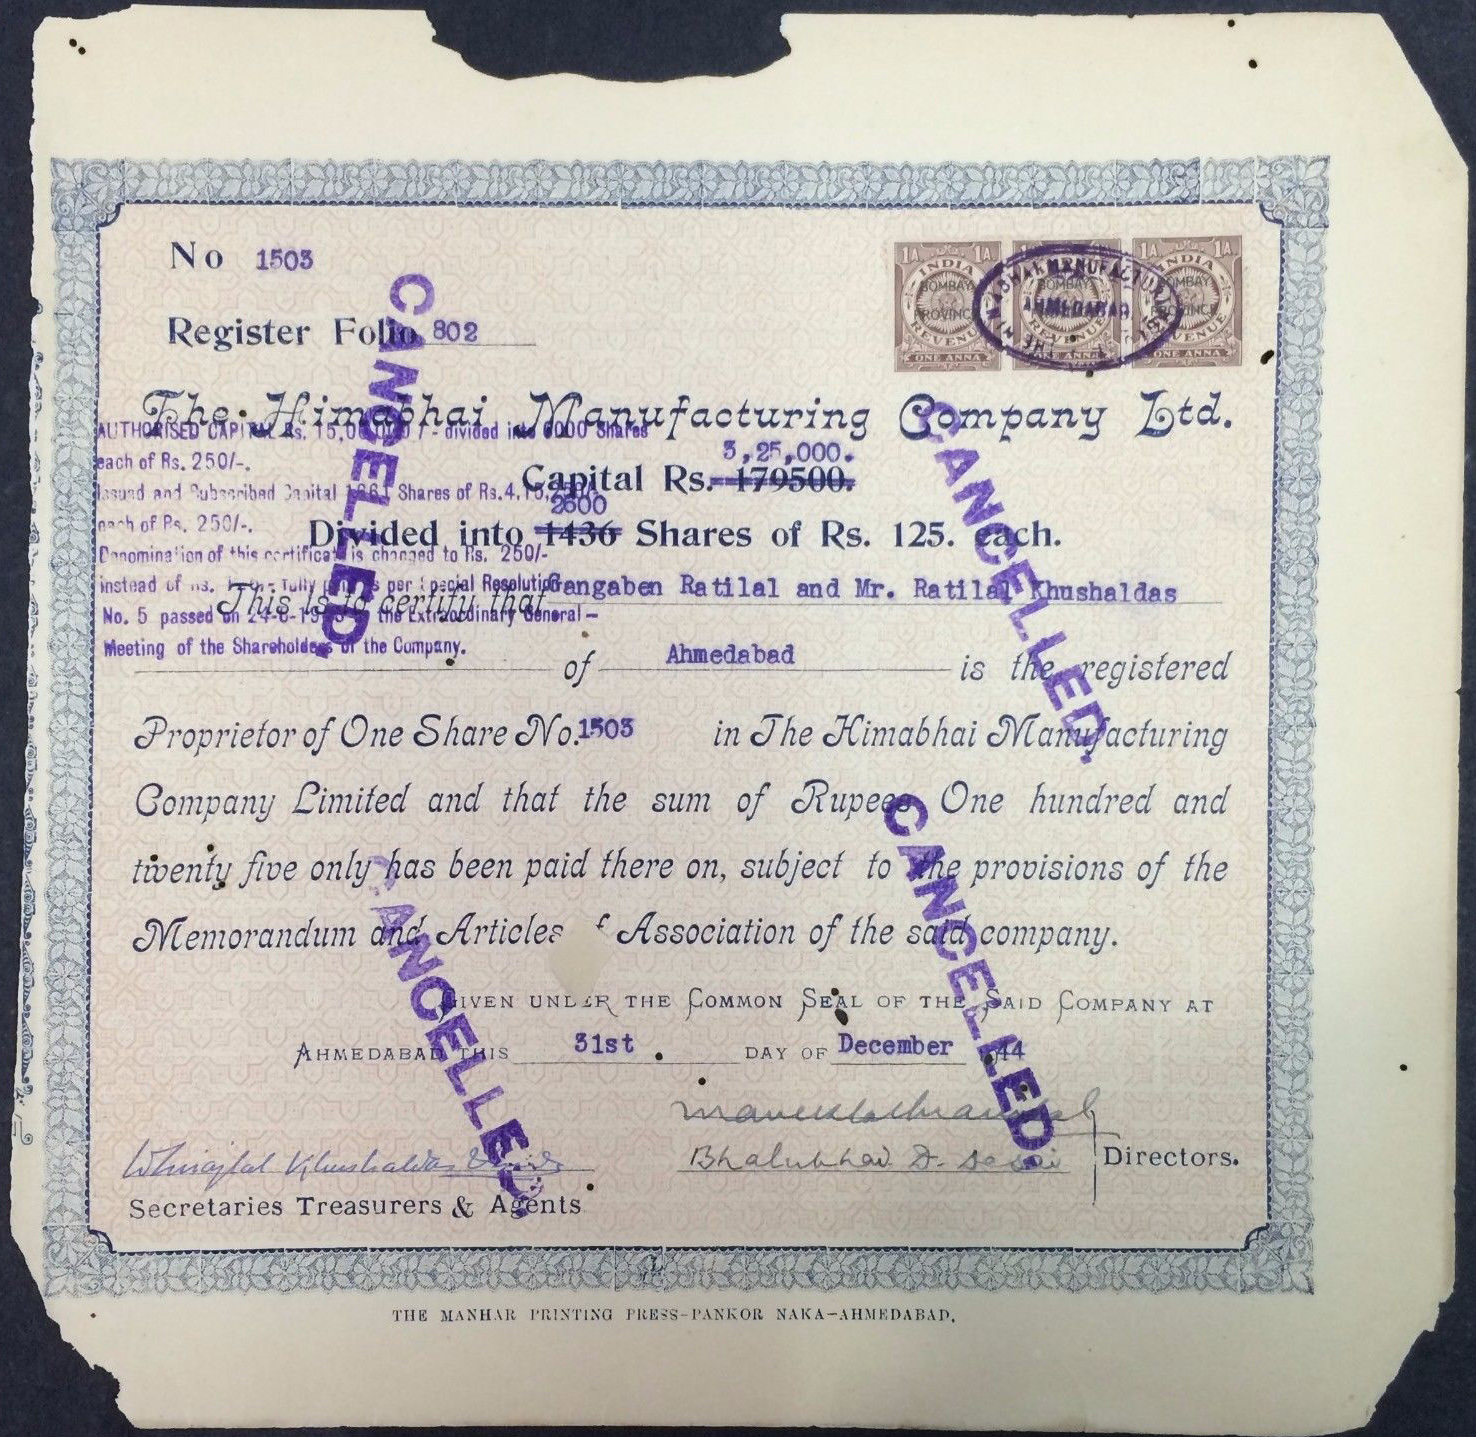 No 1503
1A 1A 1A 1A
INDIA INDIA
BOMBAY BOMBAY BOMBAY
PROVINCE PROVINCE
REVENUE REVENUE REVENUE
ONE ANNA ANNA ONE ANNA
AHMEDABAD.
Register Folio 802
The Himabhai Manufacturing Company Ltd.
AUTHORISED CAPITAL Rs. divided into 6000 Shares
each of Rs. 250/-.
3,25,000.
Capital Rs. 179500.
Issued and Subscribed Capital Shares of
each of Rs. 250/-.
2600
Divided into 1436 Shares of Rs. 125. each.
Denomination of this certificate is changed to Rs. 250/-
instead of Rs. fully as per Special Resolution
This is to certify that Gangaben Ratilal and Mr. Ratilal Khushaldas
No. 5 passed on the Extraordinary General-
Meeting of the Shareholders of the Company.
of Ahmedabad is the registered
Proprietor of One Share No. 1503 in The Himabhai Manufacturing
Company Limited and that the sum of Rupees One hundred and
twenty five only has been paid there on, subject to the provisions of the
Memorandum and Articles of Association of the said company.
GIVEN UNDER THE COMMON SEAL OF THE SAID COMPANY AT
AHMEDABAD THIS 31st DAY OF December 44
Bhalubhai D. Desai
Directors.
Secretaries Treasurers & Agents
CANCELLED.
CANCELLED.
CANCELLED.
CANCELLED.
THE MANHAR PRINTING PRESS-PANKOR NAKA-AHMEDABAD.